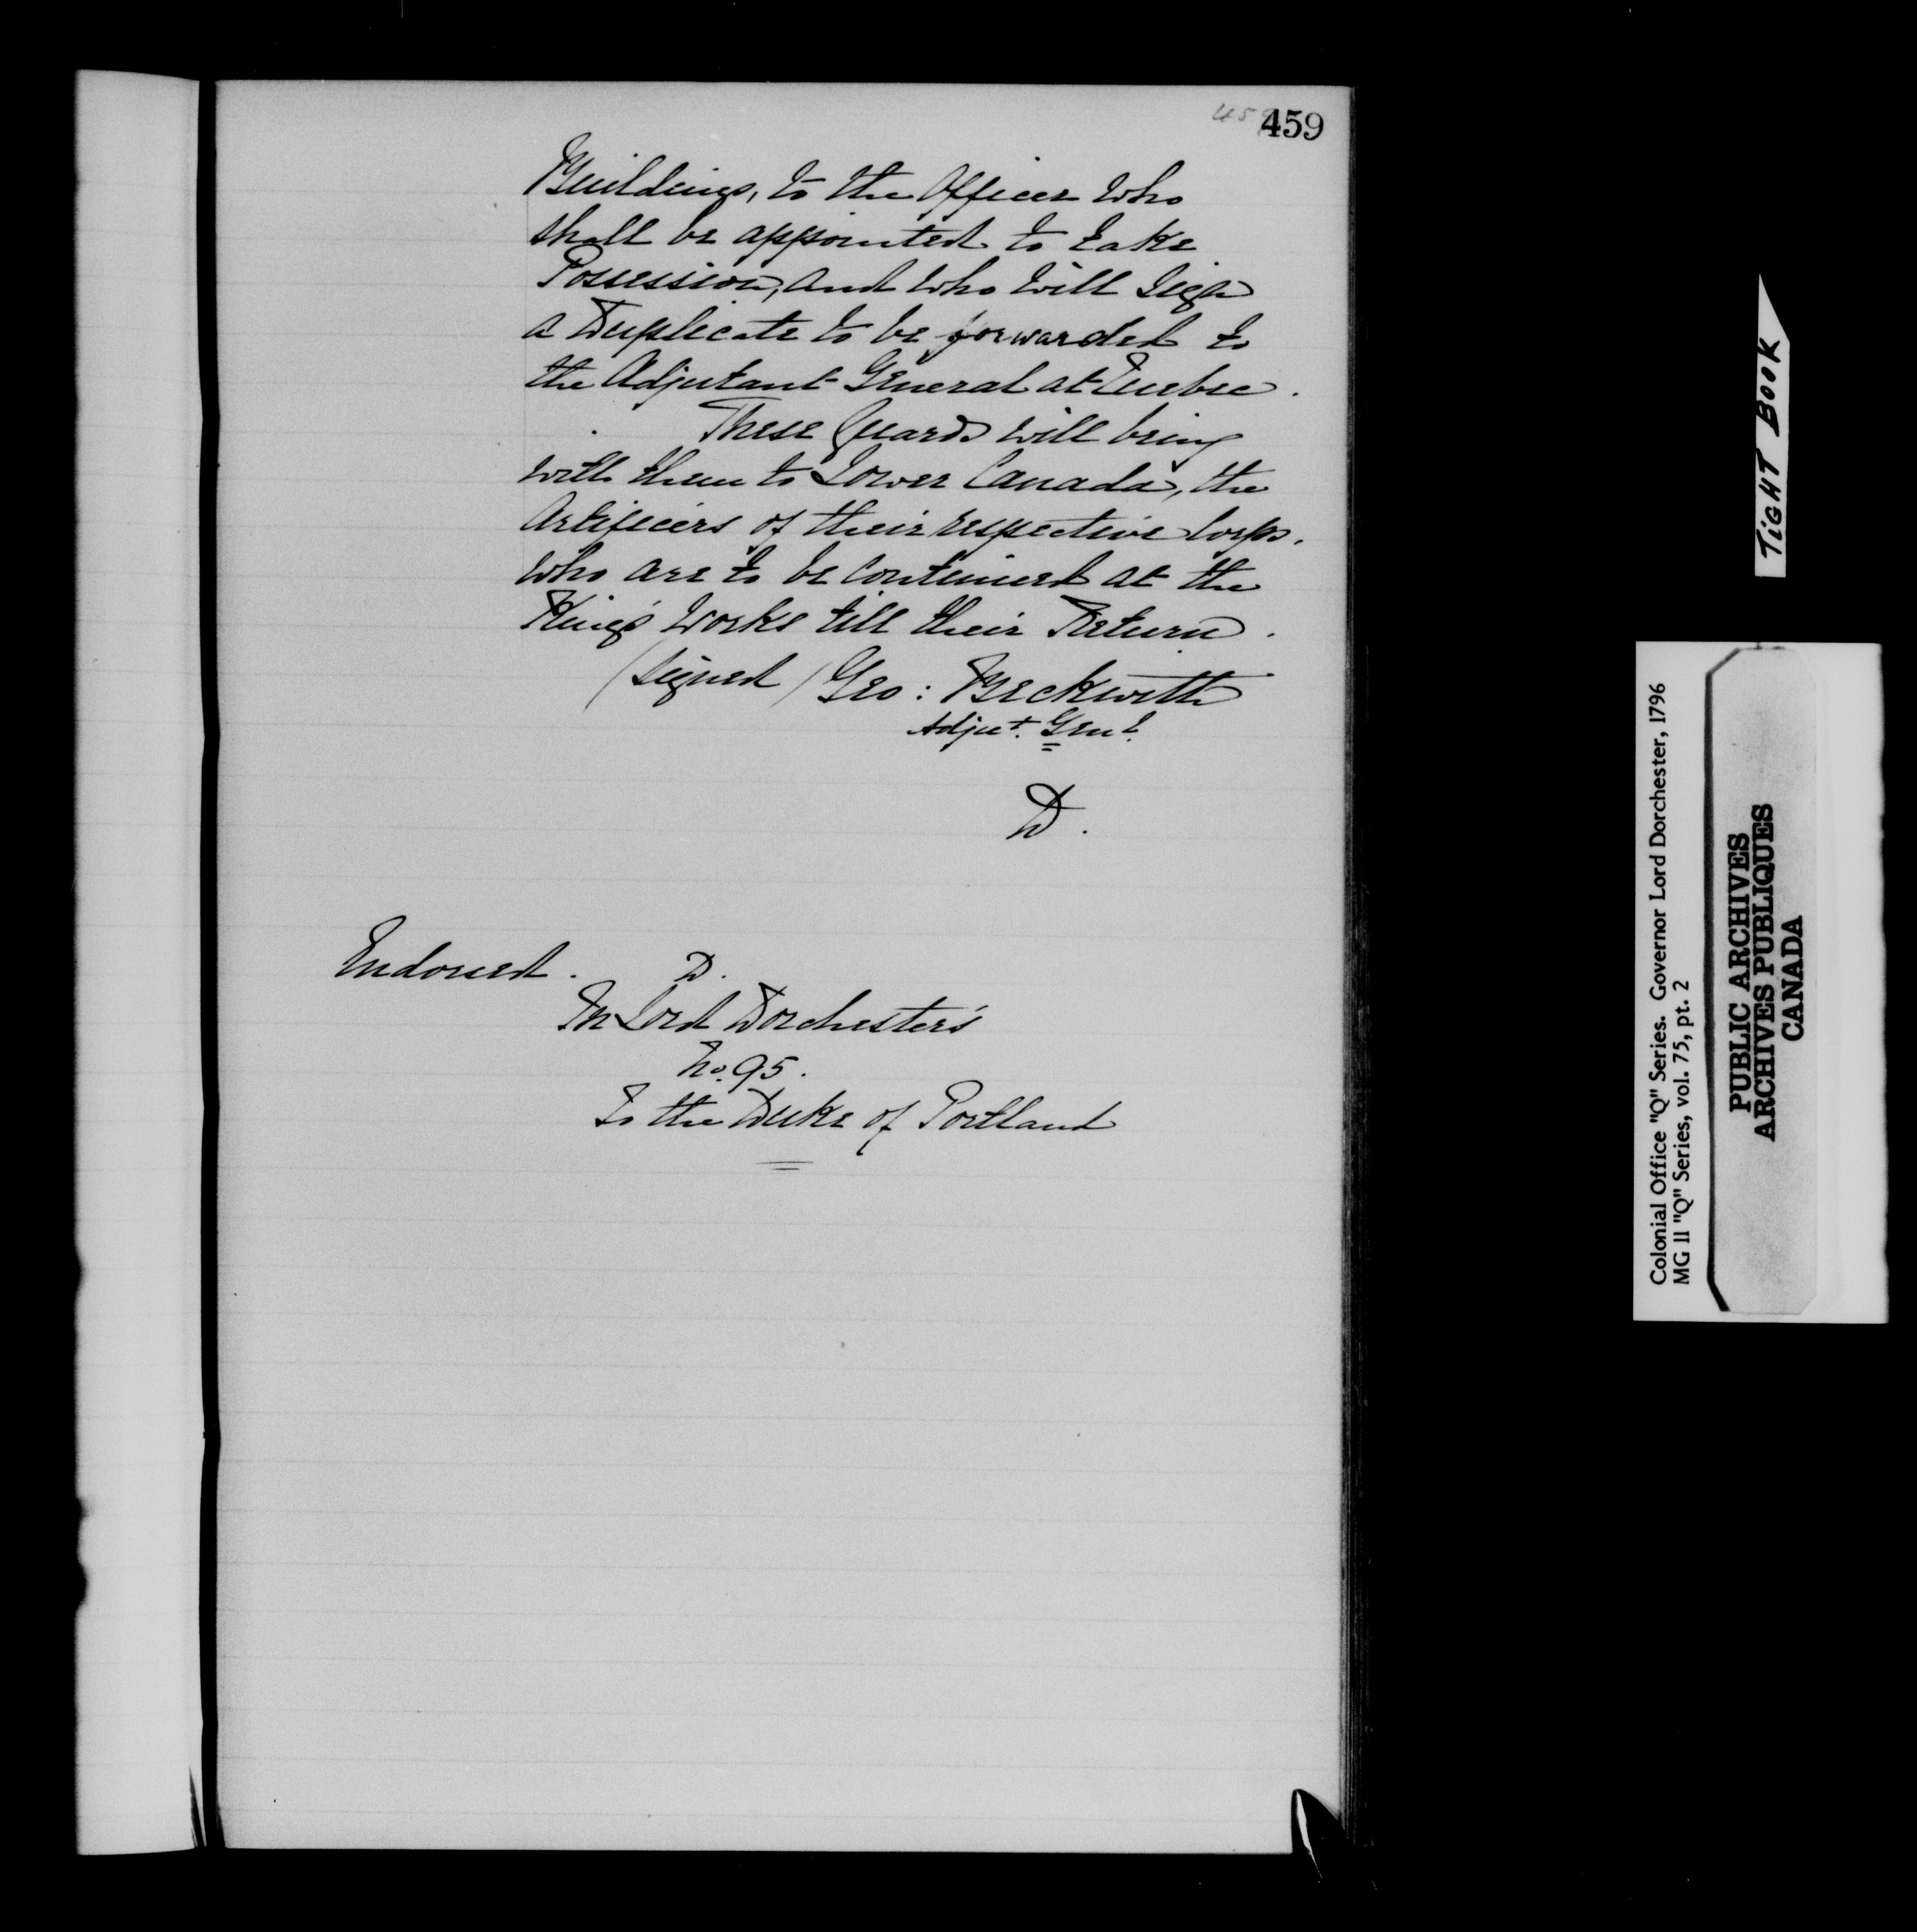 459
459
Buildings, to the Officer who
shall be appointed to take
Possession, and who will Sign
a Duplicate to be forwarded to
the Adjutant General at Quebec.
These Guards will bring
with them to Lower Canada, the
Artificers of their respective Corps.
who are to be Continued at the
King's Works till their Return.
(Signed) Geo: Beckwith
Adjut. Genl.
D.
Endorsed. D.
In Lord Dorchester's
No. 95.
To the Duke of Portland
TIGHT BOOK
Colonial Office "Q" Series. Governor Lord Dorchester, 1796
MG 11 "Q" Series, vol. 75, pt. 2
PUBLIC ARCHIVES
ARCHIVES PUBLIQUES
CANADA